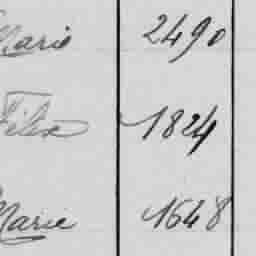 Marie 2490
Félix 1824
Marie 1648